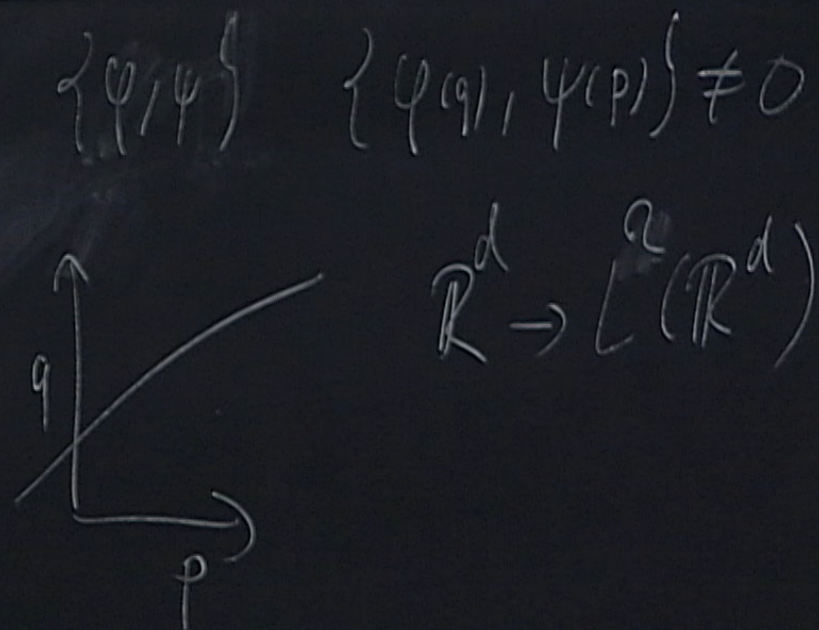 {φ,ψ} {φ(q), ψ(p)} ≠ 0
ℝᵈ → L²(ℝᵈ)
q
p